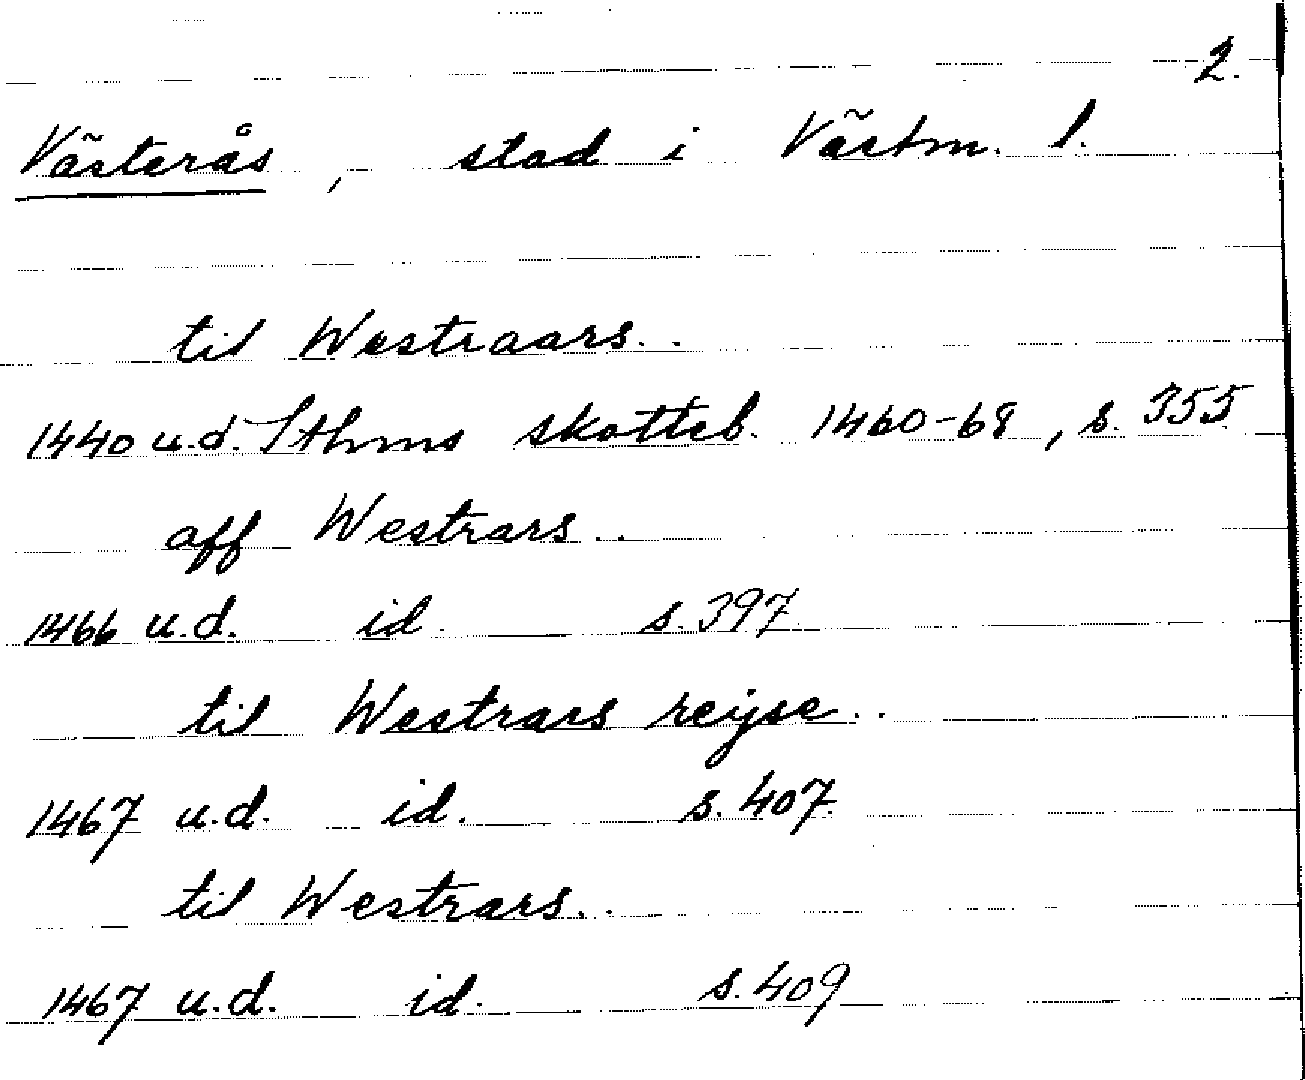 2.
Västerås, stad i Västm. l.
til Westraars..
1440 u.d. Sthms skotteb. 1460-68, s. 355
aff Westrars..
1466 u.d. id. s. 397
til Westrars reijse..
1467 u.d. id. s. 407.
til Westrars..
1467 u.d. id. s. 409